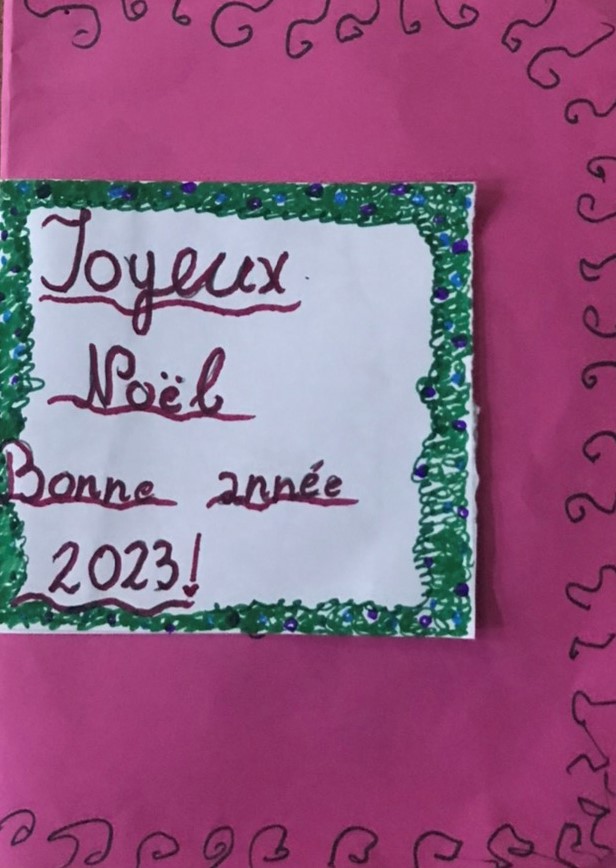 Joyeux
Noël
Bonne année
2023!